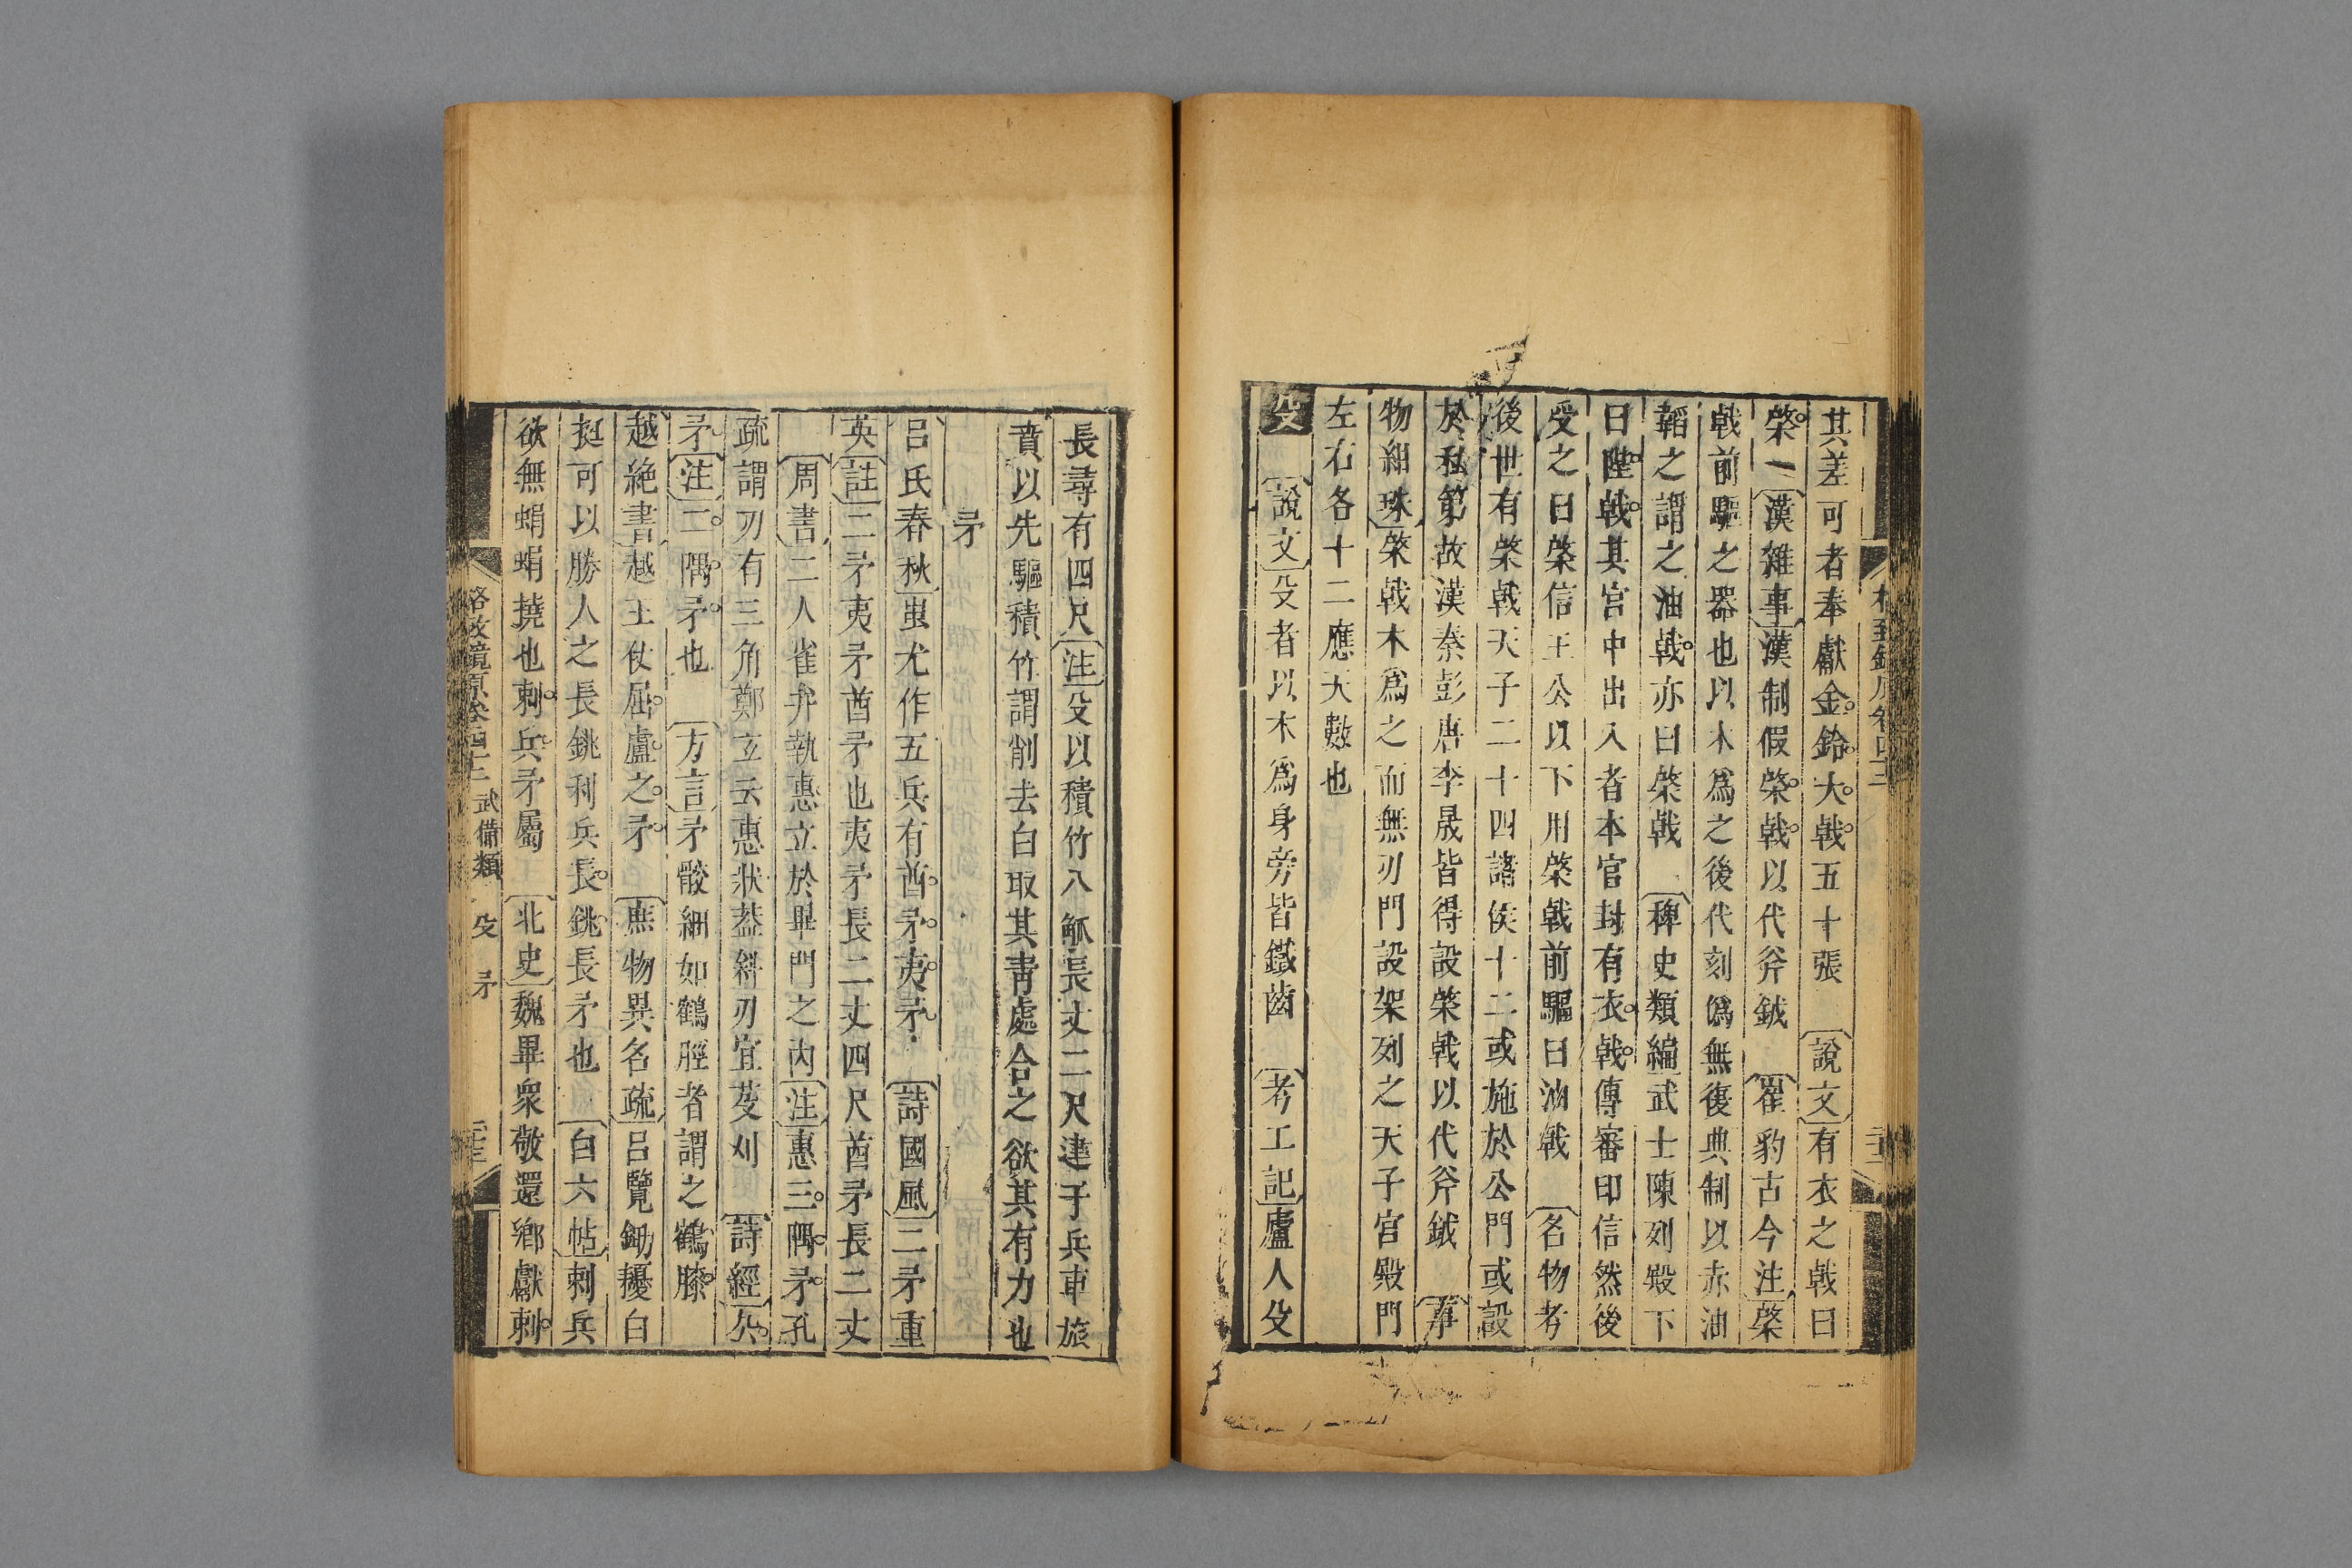 其差可者奉獻金鎗大戟五十張　說文有衣之戟曰
棨一漢雜事漢制假棨戟以代斧鉞　崔豹古今注棨
戟前驅之器也以木爲之後代刻僞無復典制以赤油
韜之謂之油戟亦曰棨戟　稗史類編武士陳列殿下
曰陛戟其宮中出入者本官封有衣戟傳審印信然後
受之曰棨信王公以下用棨戟前驅曰油戟　名物考
後世有棨戟天子二十四諸侯十二或施於公門或設
於私第故漢秦彭唐李晟皆得設棨戟以代斧鉞　事
物紺珠棨戟木爲之而無刃門設架列之天子宮殿門
左右各十二應天數也
殳　說文殳者以木爲身旁皆鐵齒　考工記廬人殳
長尋有四尺注殳以積竹八觚長丈二尺建于兵車旅
賁以先驅積竹謂削去白取其靑處合之欲其有力也
矛
呂氏春秋蚩尤作五兵有酋矛夷矛　詩國風二矛重
英註二矛夷矛酋矛也夷矛長二丈四尺酋矛長二丈
周書二人雀弁執惠立於畢門之內注惠三隅矛孔
疏謂刃有三角鄭玄云惠狀葢斜刃宜芟刈　詩經厹
矛注二隅矛也　方言矛骹細如鶴脛者謂之鶴膝
越絶書越王仗屈盧之矛　庶物異名疏呂覽鋤擾白
挺可以勝人之長銚利兵長銚長矛也　白六帖刺兵
欲無蜎蜎撓也刺兵矛屬　北史魏畢衆敬還鄉獻刺
格致鏡原卷四十二　武備類　殳　矛